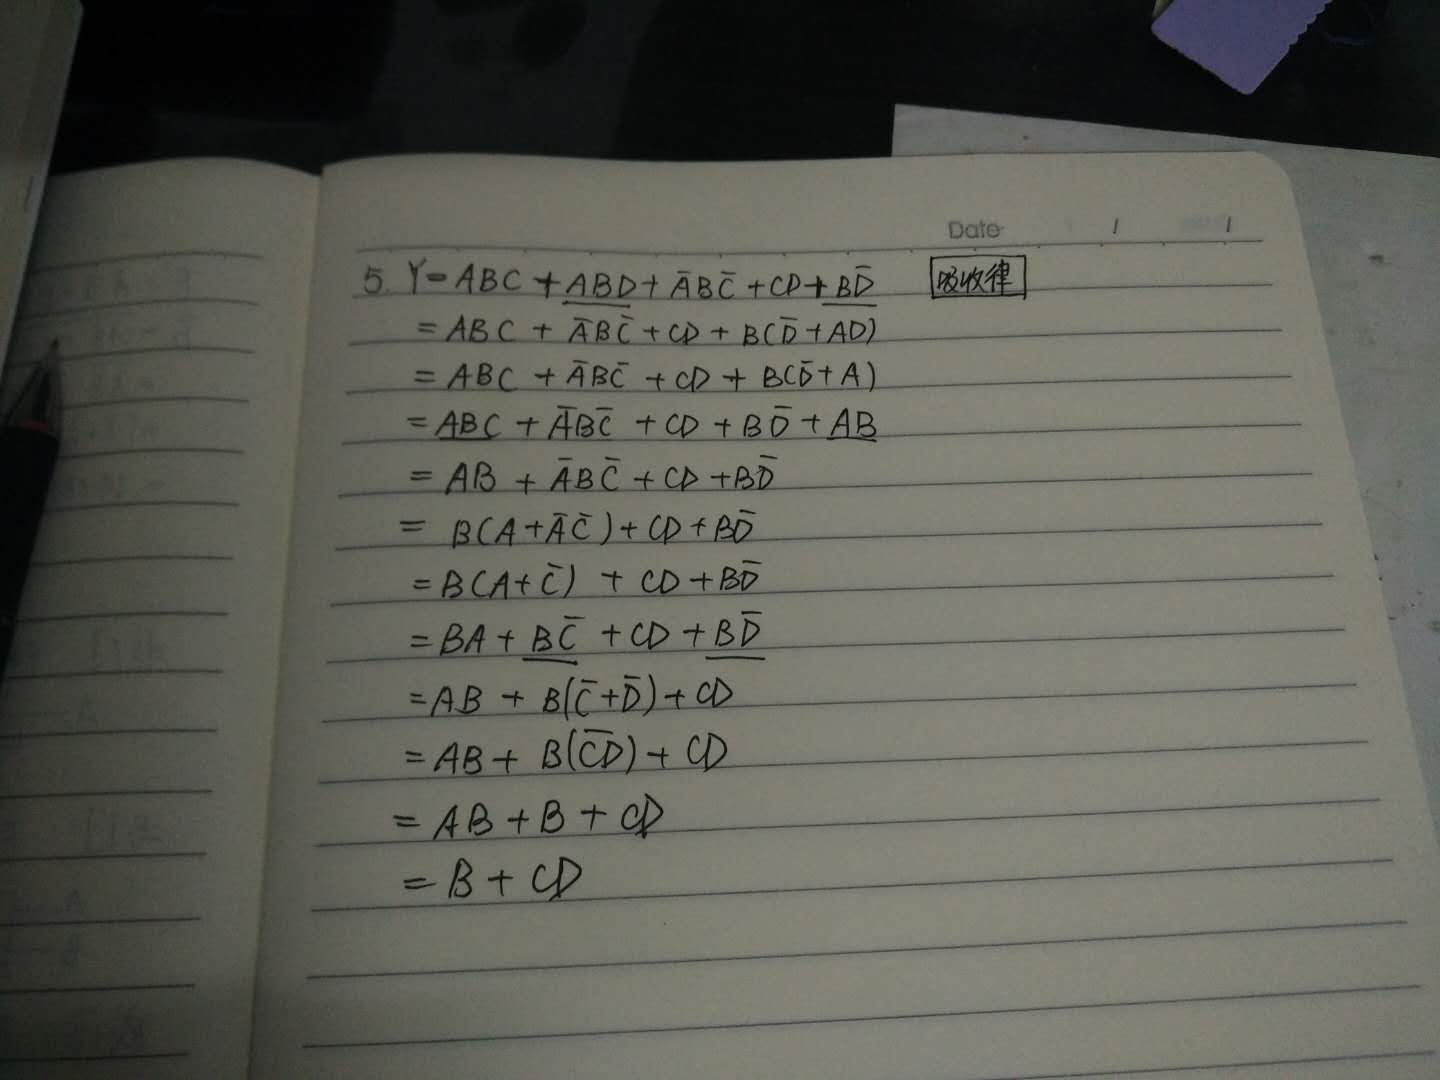 Date / /
5. Y = ABC + ABD + A̅BC̅ + CD + BD̅ 吸收律
= ABC + A̅BC̅ + CD + B(D̅ + AD)
= ABC + A̅BC̅ + CD + B(D̅ + A)
= ABC + A̅BC̅ + CD + BD̅ + AB
= AB + A̅BC̅ + CD + BD̅
= B(A + A̅C̅) + CD + BD̅
= B(A + C̅) + CD + BD̅
= BA + BC̅ + CD + BD̅
= AB + B(C̅ + D̅) + CD
= AB + B(C̅D̅) + CD
= AB + B + CD
= B + CD